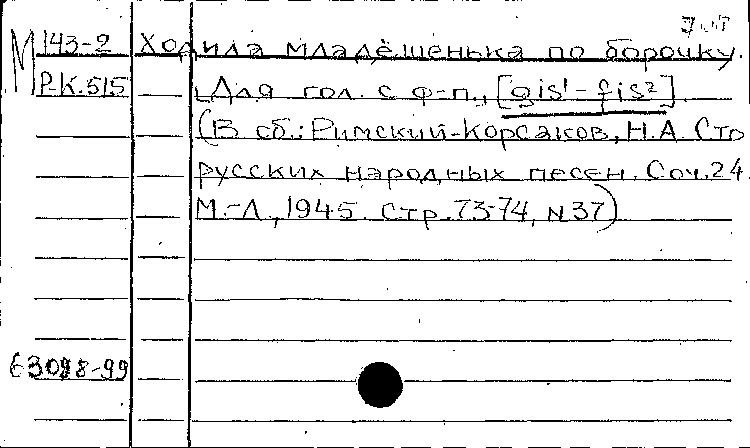 М 143-2 Ходила младёшенька по борочку.
Р-К.515 Для гол. с ф-п., [gis¹-fis²]
(В сб.: Римский-Корсаков, Н.А. Сто
русских народных песен. Соч.24.
М.-Л., 1945. Стр.73-74, №37)
63098-99